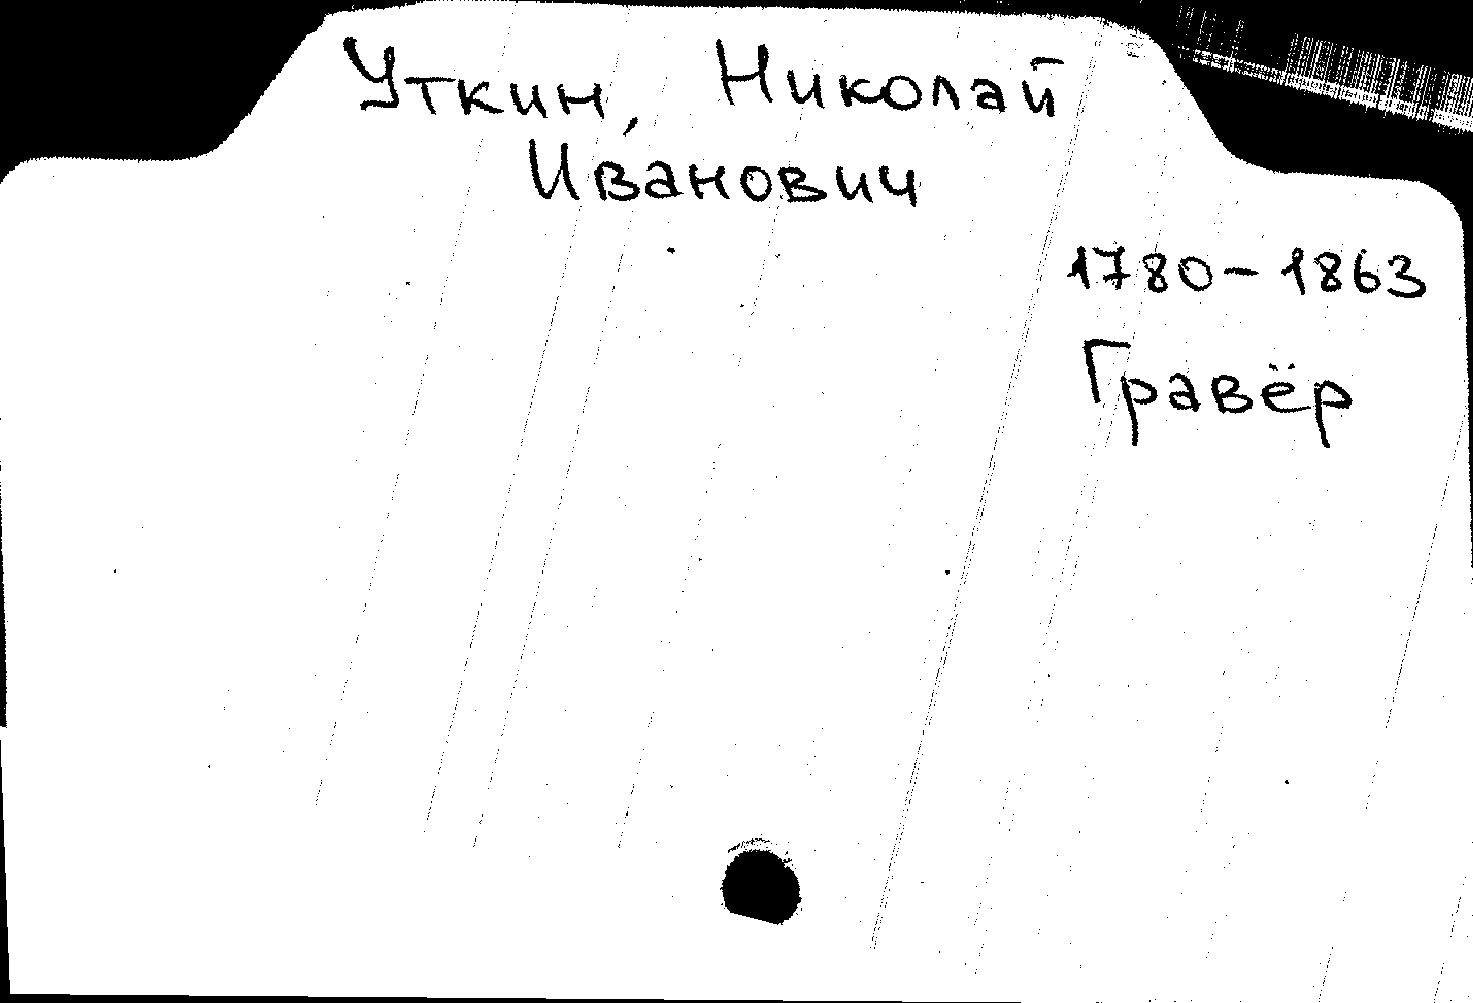 Уткин, Николай
Иванович
1780-1863
Гравёр